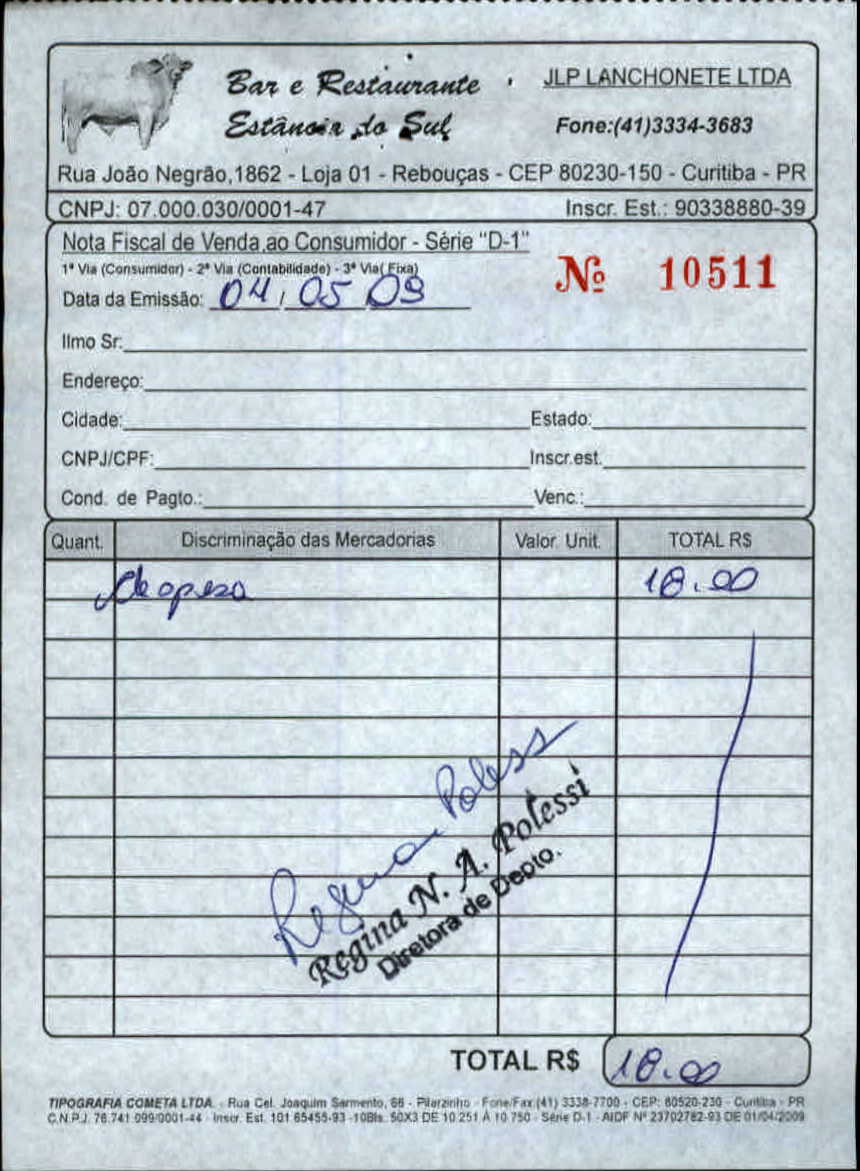 Bar e Restaurante
Estância do Sul
JLP LANCHONETE LTDA
Fone:(41)3334-3683
Rua João Negrão,1862 - Loja 01 - Rebouças - CEP 80230-150 - Curitiba - PR
CNPJ: 07.000.030/0001-47 Inscr. Est.: 90338880-39
Nota Fiscal de Venda ao Consumidor - Série "D-1"
1ª Via (Consumidor) - 2ª Via (Contabilidade) - 3ª Via( Fixa)
Nº 10511
Data da Emissão: 04 / 05 09
Ilmo Sr:
Endereço:
Cidade: Estado:
CNPJ/CPF: Inscr.est.
Cond. de Pagto.: Venc.:
Quant. Discriminação das Mercadorias Valor. Unit. TOTAL R$
despesa 18.00
Regina Poless
Regina N. A. Polessi
Diretora de Depto.
TOTAL R$ 18.00
TIPOGRAFIA COMETA LTDA. - Rua Cel. Joaquim Sarmento, 66 - Pilarzinho - Fone/Fax:(41) 3338-7700 - CEP: 80520-230 - Curitiba - PR
C.N.P.J. 76.741.099/0001-44 - Inscr. Est. 101.65455-93 -10Bls. 50X3 DE 10.251 À 10.750 - Série D-1 - AIDF Nº 23702782-93 DE 01/04/2009